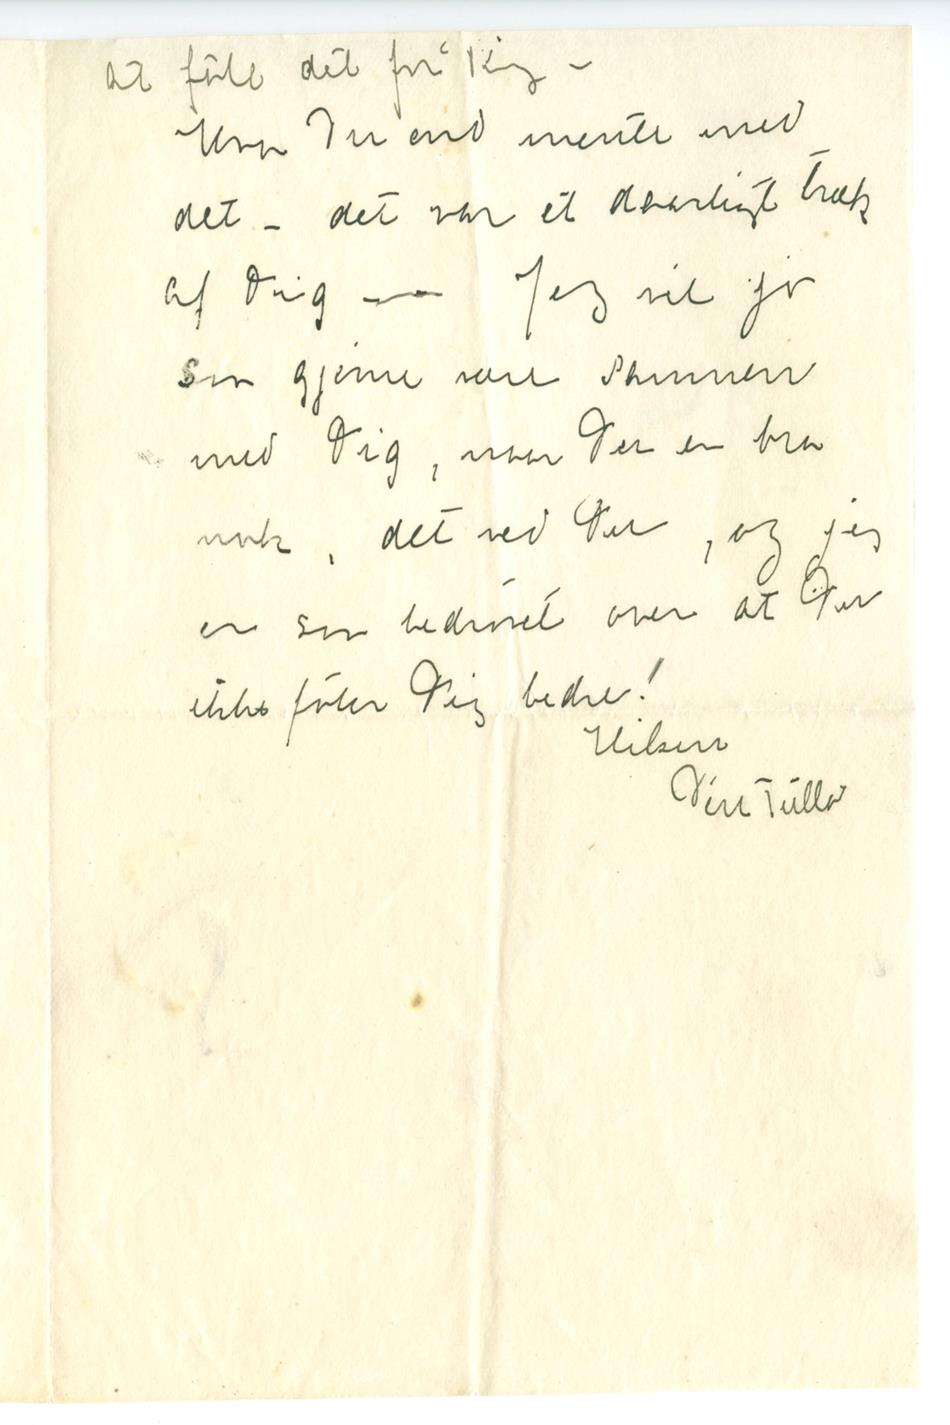 at føle det for
Hva Du end mente med
det – det var et daarligt træk
af Dig — Jeg vil jo
saa gjerne være sammen
med Dig, naar Du er bra
nok, det ved Du, og jeg
er saa bedrøvet over at Du
ikke føler Dig bedre!
Hilsen
Din Tulla